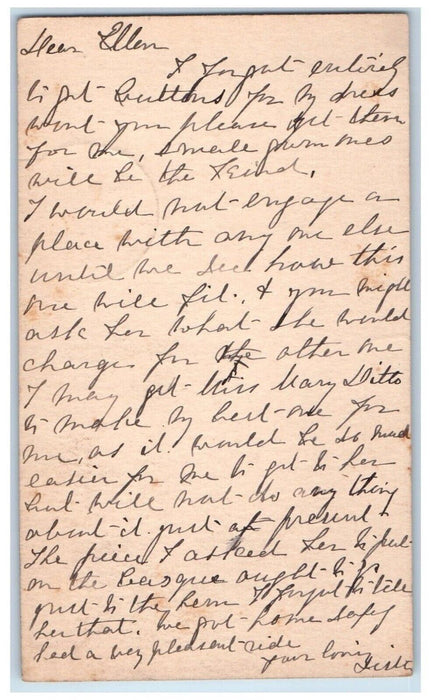 Dear Ellen
I forgot entirely
to get buttons for my dress
wont you please get them
for me, small ones
will be the kind.
I would not engage a
place with any one else
until we see how this
one will fit. & you might
ask her what she would
charge for the other one
I may get Miss Mary Ditto
to make my best one for
me, as it would be so much
easier for me to get to her
but will not do any thing
about it just at present.
The piece I asked her to put
on the basque ought to go
just to the hem I forgot to tell
her that. We got home safely
had a very pleasant ride
your loving
Sister